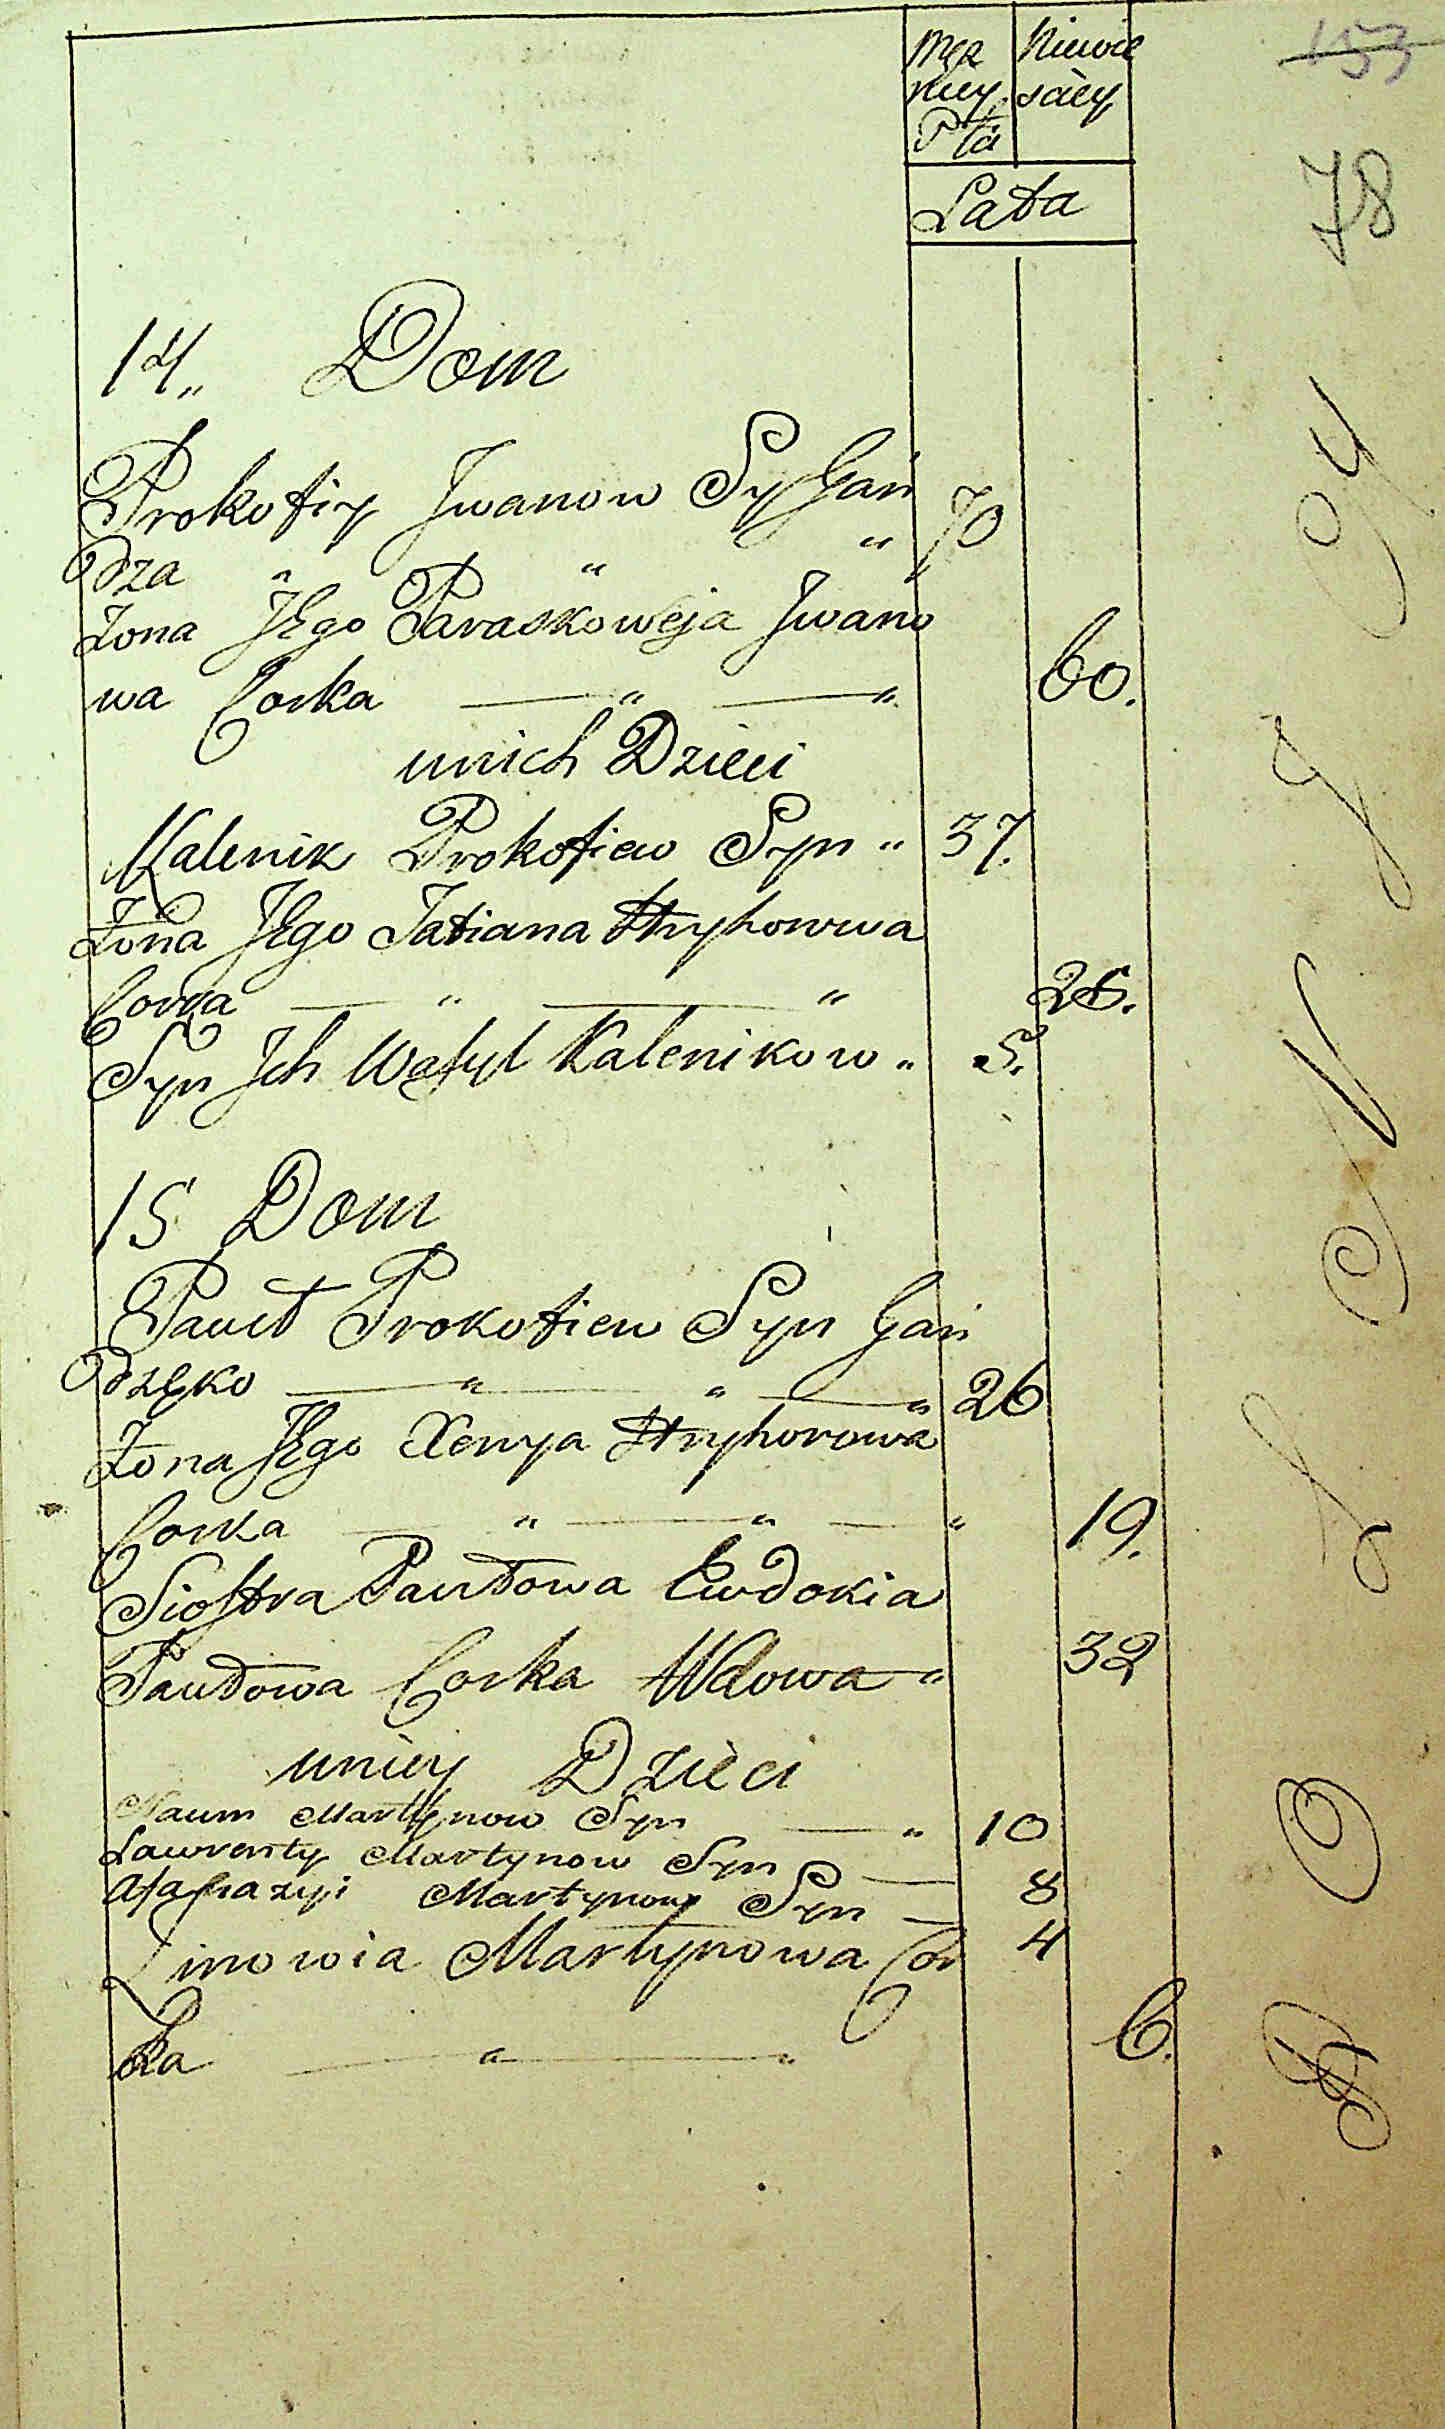 Męz Niewie
kiey sciey
Płci
Lata
153
78
14„ Dom
Prokofiy Jwanow Sy Gan 70
dza „ „ „
Zona Jego Paraskoweja Jwano
wa Corka — „ — „ 60.
unich Dzieci
Kalenik Prokofiew Syn „ 37.
Zona Jego Tatiana Hryhorowa
Corka — „ — „ 26.
Syn Jch Wasyl Kalenikow „ 5.
15 Dom
Paweł Prokofiew Syn Gan
dzęko — „ „ — „ 26
Zona Jego Xenya Hryhorowa
Corka — „ — „ — „ 19.
Siostra Pawłowa Ewdokia
Pawłowa Corka Wdowa „ 32
uniey Dzieci
Naum Martynow Syn — „ 10
Lawrenty Martynow Syn — 8
Martynow Syn — 4
Zinowia Martynowa Cor
ka — „ — „ 6.